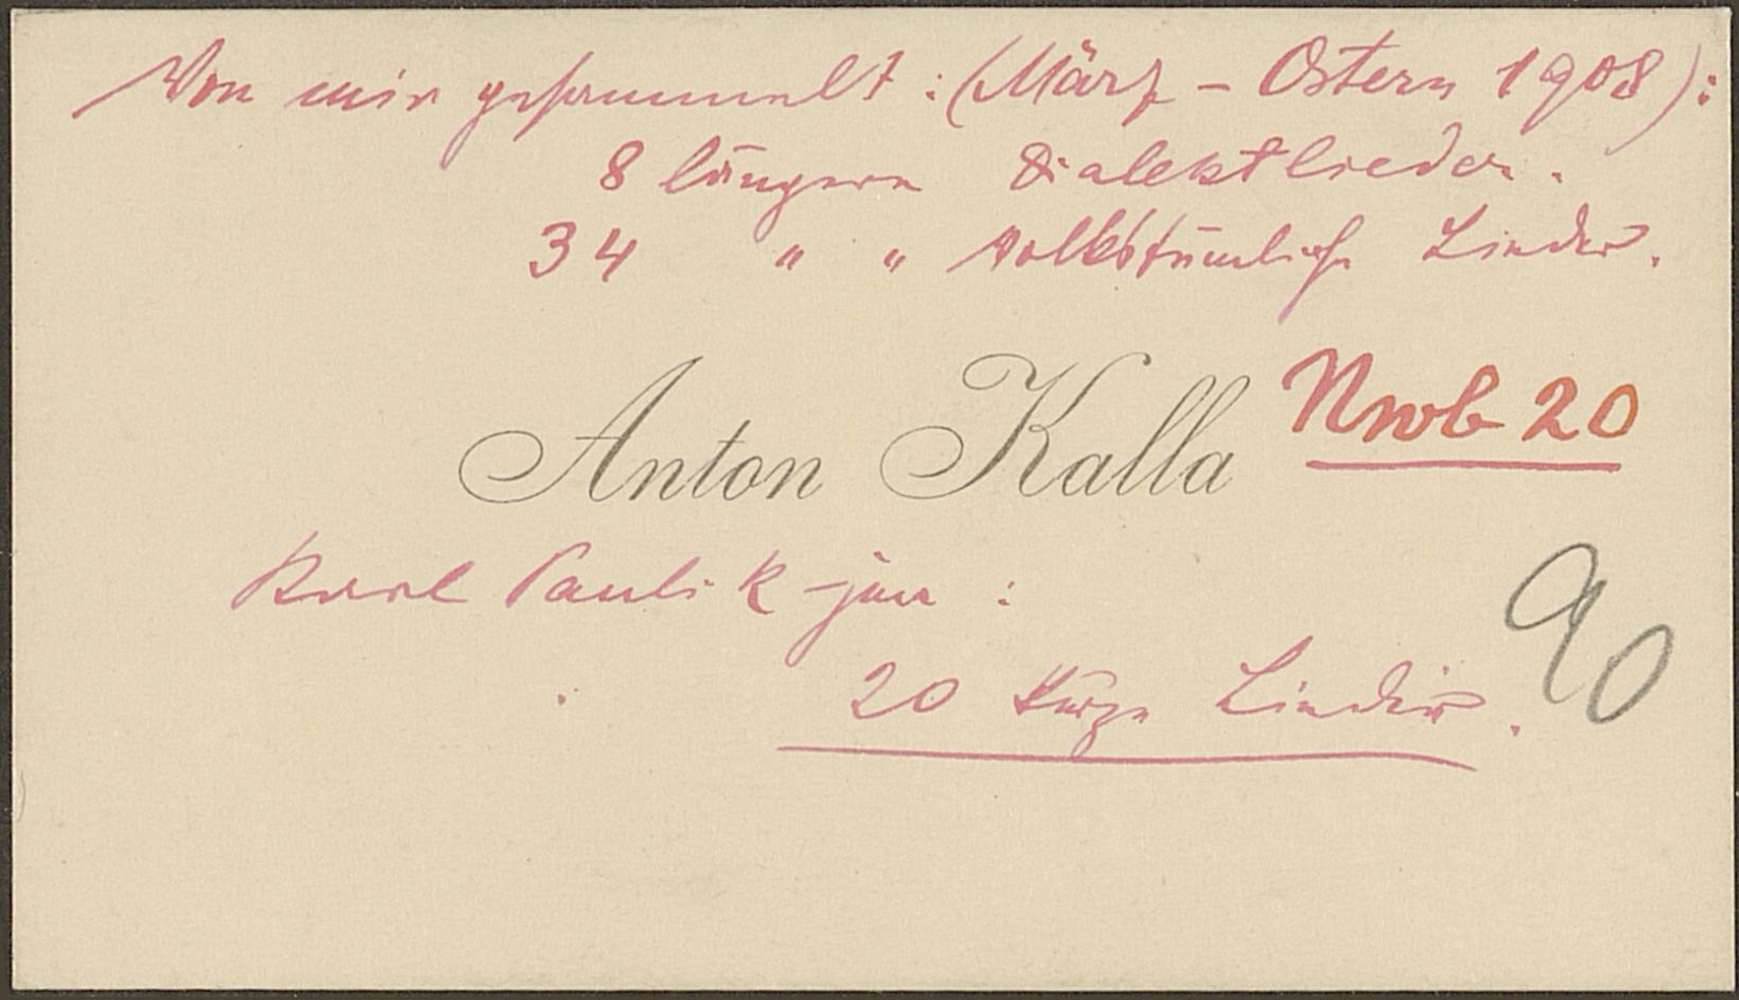 Von mir gesammelt: (März – Ostern 1908):
8 längere Dialektlieder.
34 " " volkstümliche Lieder.
Anton Kalla
Nrob 20
Karl Paulik jun:
20 kurze Lieder.
90